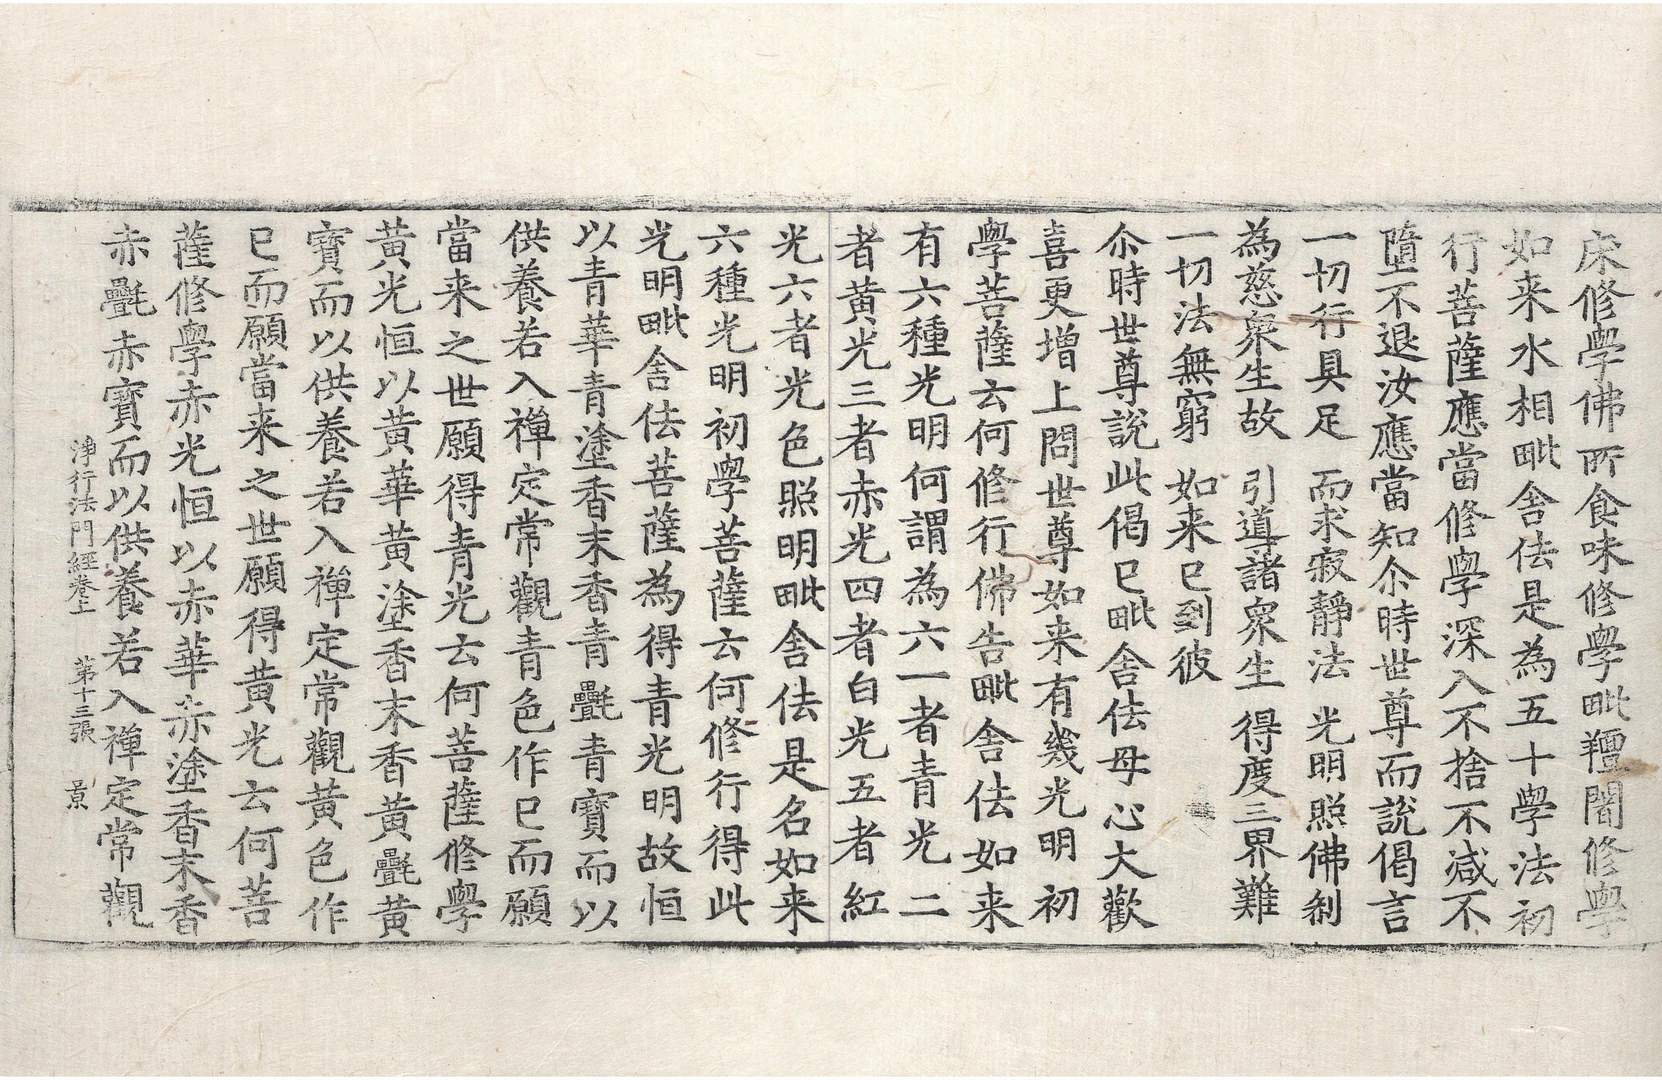 床修學佛所食味修學毗羶闍修學
如来水相毗舍佉是為五十學法初
行菩薩應當修學深入不捨不减不
墮不退汝應當知尒時世尊而說偈言
一切行具足　而求寂靜法　光明照佛刹
為慈衆生故　引道諸衆生　得度三界難
一切法無窮　如来已到彼
尒時世尊說此偈已毗舍佉母心大歡
喜更增上問世尊如来有幾光明　初
學菩薩云何修行佛告毗舍佉如来
有六種光明何謂為六一者青光二
者黄光三者赤光四者白光五者紅
光六者光色照明毗舍佉是名如来
六種光明初學菩薩云何修行得此
光明毗舍佉菩薩為得青光明故恒
以青華青塗香末香青疊青寶而以
供養若入禪定常觀青色作已而願
當来之世願得青光云何菩薩修學
黄光恒以黄華黄塗香末香黄㲲黄
寶而以供養若入禪定常觀黄色作
已而願當来之世願得黄光云何菩
薩修學赤光恒以赤華赤塗香末香
赤㲲赤寶而以供養若入禪定常觀
淨行法門經卷上　第十三張　景